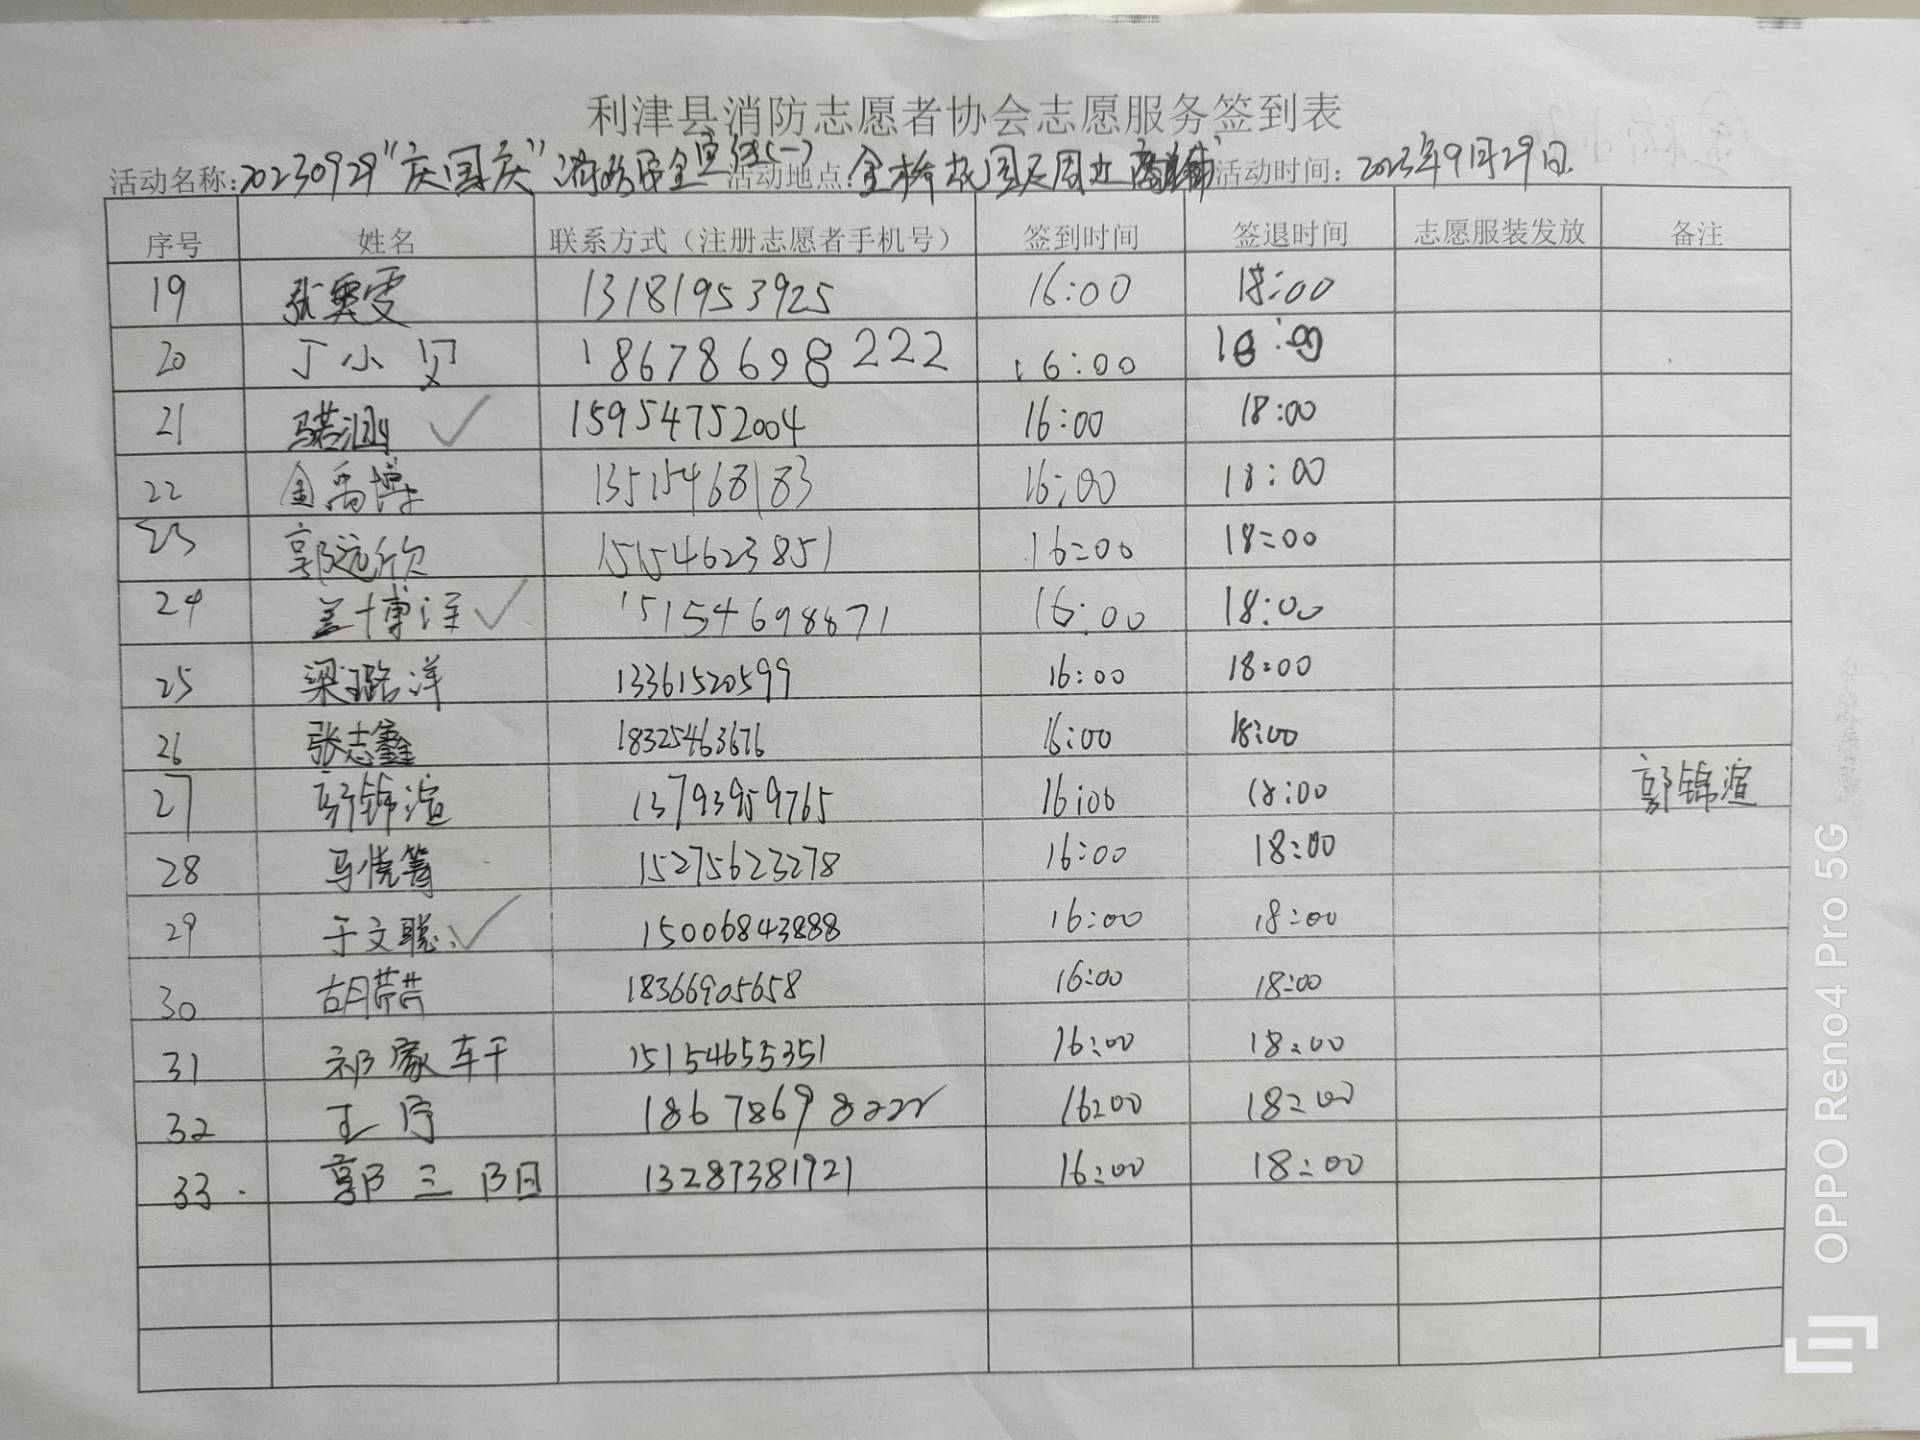 利津县消防志愿者协会志愿服务签到表
活动名称:20230929"庆国庆"消防安全宣传(一) 活动地点:金桥花园及周边商铺 活动时间:2023年9月29日
序号 姓名 联系方式（注册志愿者手机号） 签到时间 签退时间 志愿服装发放 备注
19 张奥雯 13181953925 16:00 18:00
20 丁小 18678698222 16:00 18:00
21 15954752004 16:00 18:00
22 金禹博 13515468183 16:00 18:00
23 郭远欣 15154623851 16:00 18:00
24 盖博洋 15154698871 16:00 18:00
25 梁璐洋 13361520599 16:00 18:00
26 张志鑫 18325463676 16:00 18:00
27 郭锦渲 13793959765 16:00 18:00 郭锦渲
28 马 15275623278 16:00 18:00
29 于文聪 15006843888 16:00 18:00
30 胡芸芸 18366905658 16:00 18:00
31 祁家轩 15154655351 16:00 18:00
32 18678698222 16:00 18:00
33 郭三阳 13287381921 16:00 18:00
OPPO Reno4 Pro 5G